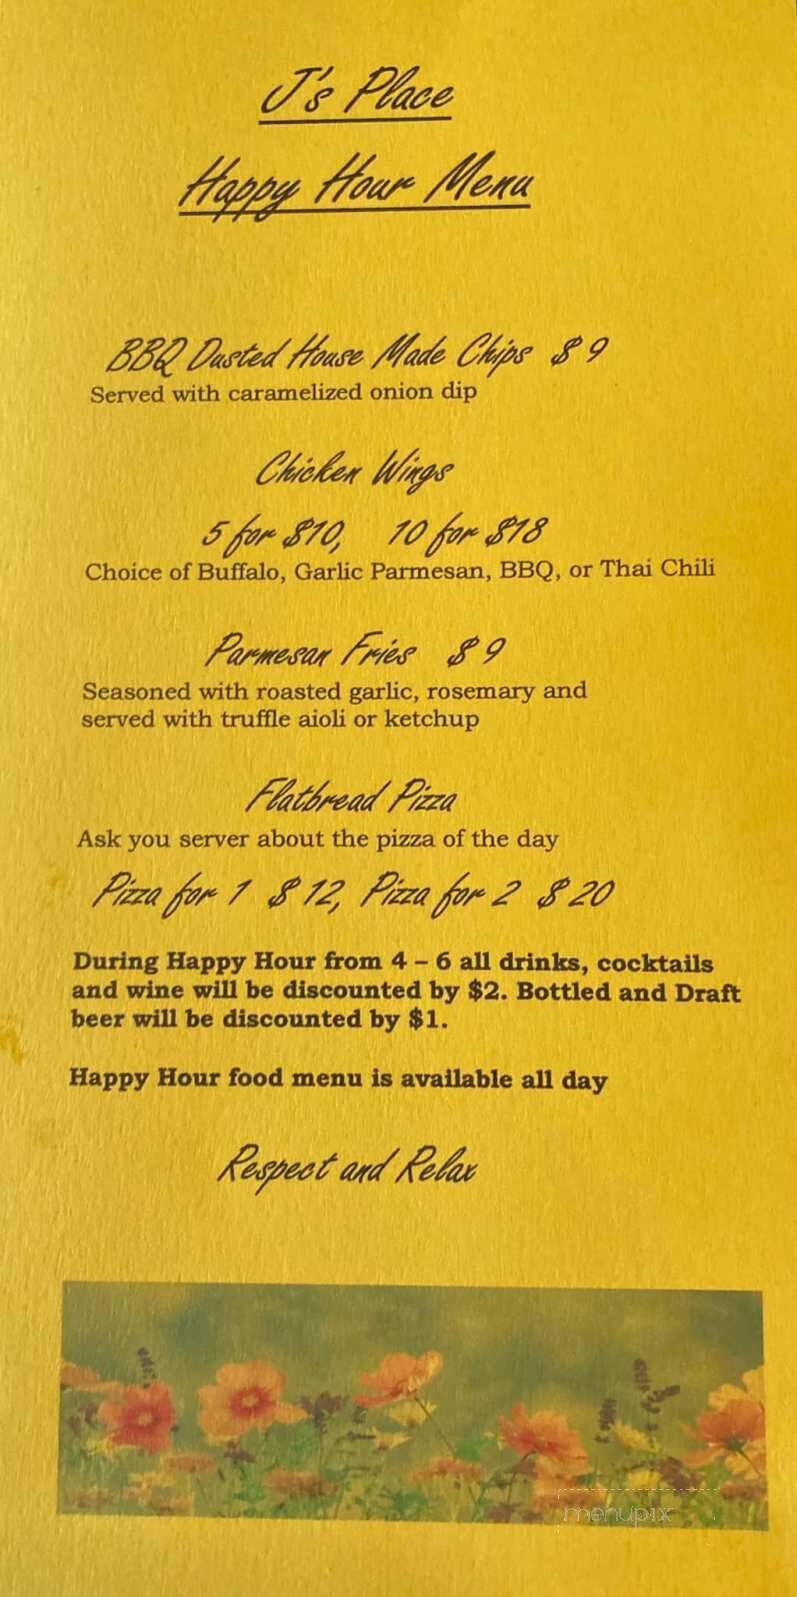 J's Place
Happy Hour Menu
BBQ Dusted House Made Chips $9
Served with caramelized onion dip
Chicken Wings
5 for $10, 10 for $18
Choice of Buffalo, Garlic Parmesan, BBQ, or Thai Chili
Parmesan Fries $9
Seasoned with roasted garlic, rosemary and
served with truffle aioli or ketchup
Flatbread Pizza
Ask you server about the pizza of the day
Pizza for 1 $12, Pizza for 2 $20
During Happy Hour from 4 – 6 all drinks, cocktails
and wine will be discounted by $2. Bottled and Draft
beer will be discounted by $1.
Happy Hour food menu is available all day
Respect and Relax
menupix